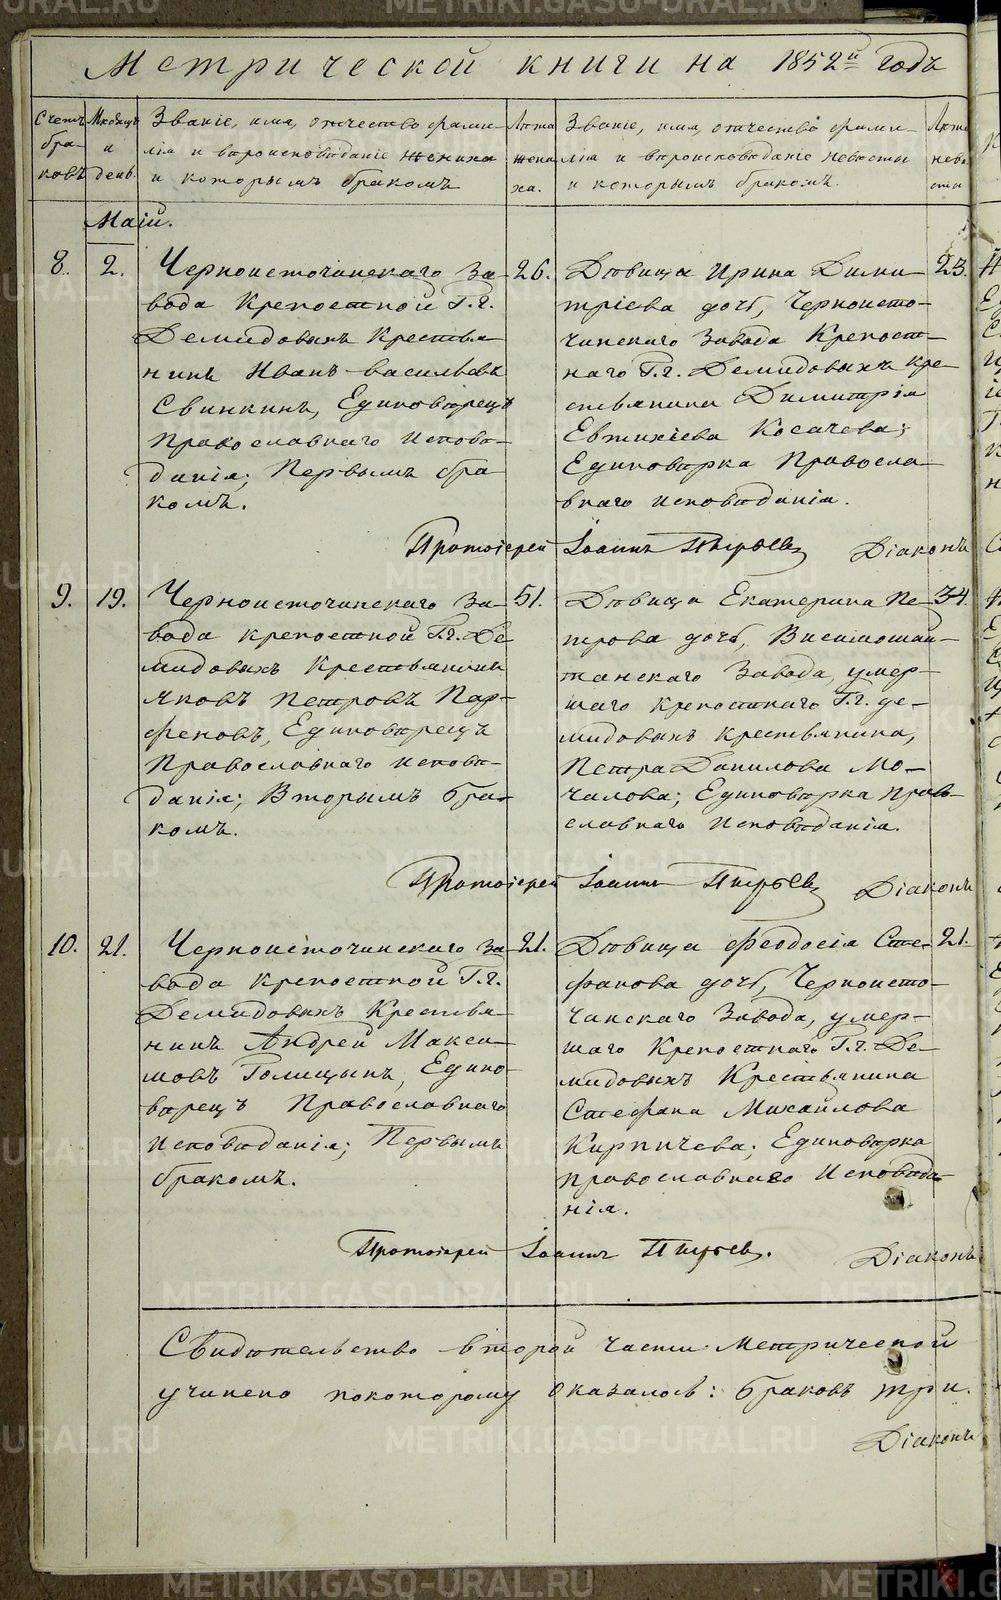 Метрической книги на 1852й годъ
Счетъ браковъ
Мѣсяцъ и день
Званіе, имя, отчество фамилія и вѣроисповѣданіе жениха и которымъ бракомъ
Лѣта жениха.
Званіе, имя, отчество фамилія и вѣроисповѣданіе невѣсты и которымъ бракомъ.
Лѣта невѣсты
Маій.
8. 2.
Черноисточинскаго За-
вода Крепостной Г.г.
Демидовыхъ Крестья-
нинъ Иванъ Васильевъ
Свинкинъ, Единоверецъ
Православнаго Испове-
данія; Первымъ бра-
комъ.
26.
Дѣвица Ирина Дими-
тріева дочь, Черноисто-
чинскаго Завода Крепост-
наго Г.г. Демидовыхъ кре-
стьянина Димитрія
Евтихіева Косачева;
Единоверка Правосла-
внаго исповеданія.
23.
Протоіерей Іоаннъ Пырьевъ Діаконъ
9. 19.
Черноисточинскаго За-
вода крепостной Г.г. Де
мидовыхъ Крестьянинъ
Яковъ Петровъ Пар-
феновъ, Единоверецъ
Православнаго испове-
данія; Вторымъ бра-
комъ.
51.
Дѣвица Екатерина Пе-
трова дочь, Висимошай-
танскаго Завода, умер-
шаго крепостнаго Г.г. де-
мидовыхъ крестьянина,
Петра Данилова Мо-
чалова; Единоверка Право-
славнаго Исповеданія.
34.
Протоіерей Іоаннъ Пырьевъ Діаконъ
10. 21.
Черноисточинскаго за-
вода крепостной Г.г.
Демидовыхъ Крестья-
нинъ Андрей Макси-
мовъ Голицынъ, Едино-
верецъ Православнаго
Исповеданія; Первымъ
бракомъ.
21.
Дѣвица Феодосія Сте-
фанова дочь, Черноисто-
чинскаго Завода, умер-
шаго Крепостнаго Г.г. Де-
мидовыхъ Крестьянина
Стефана Михайлова
Кирпичева; Единоверка
православнаго Исповеда-
нія.
21.
Протоіерей Іоаннъ Пырьевъ. Діаконъ
Свидѣтельство второй части Метрической
учинено покоторому оказалось: браковъ три.
Діаконъ
METRIKI.GASO-URAL.RU